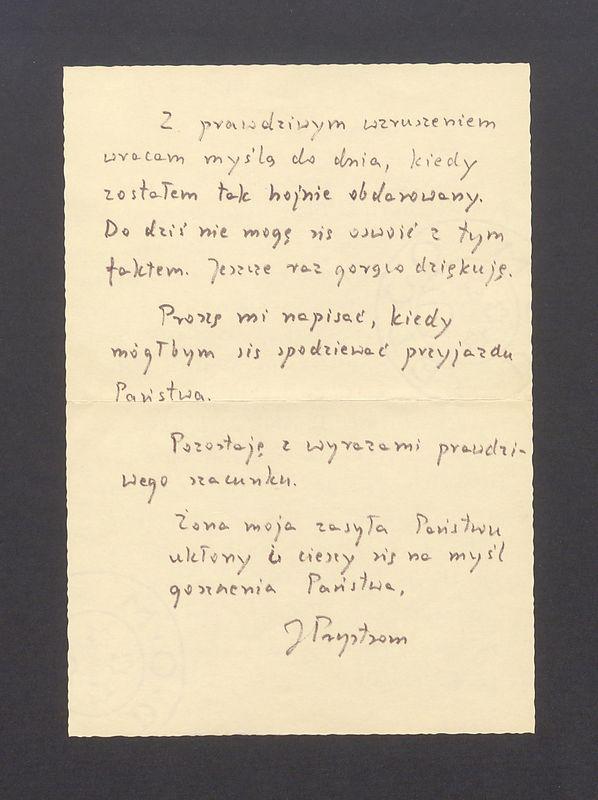 Z prawdziwym wzruszeniem
wracam myślą do dnia, kiedy
zostałem tak hojnie obdarowany.
Do dziś nie mogę się oswoić z tym
faktem. Jeszcze raz gorąco dziękuję.
Proszę mi napisać, kiedy
mógłbym się spodziewać przyjazdu
Państwa.
Pozostaję z wyrazami prawdzi-
wego szacunku.
Żona moja zasyła Państwu
ukłony i cieszy się na myśl
goszczenia Państwa,
J